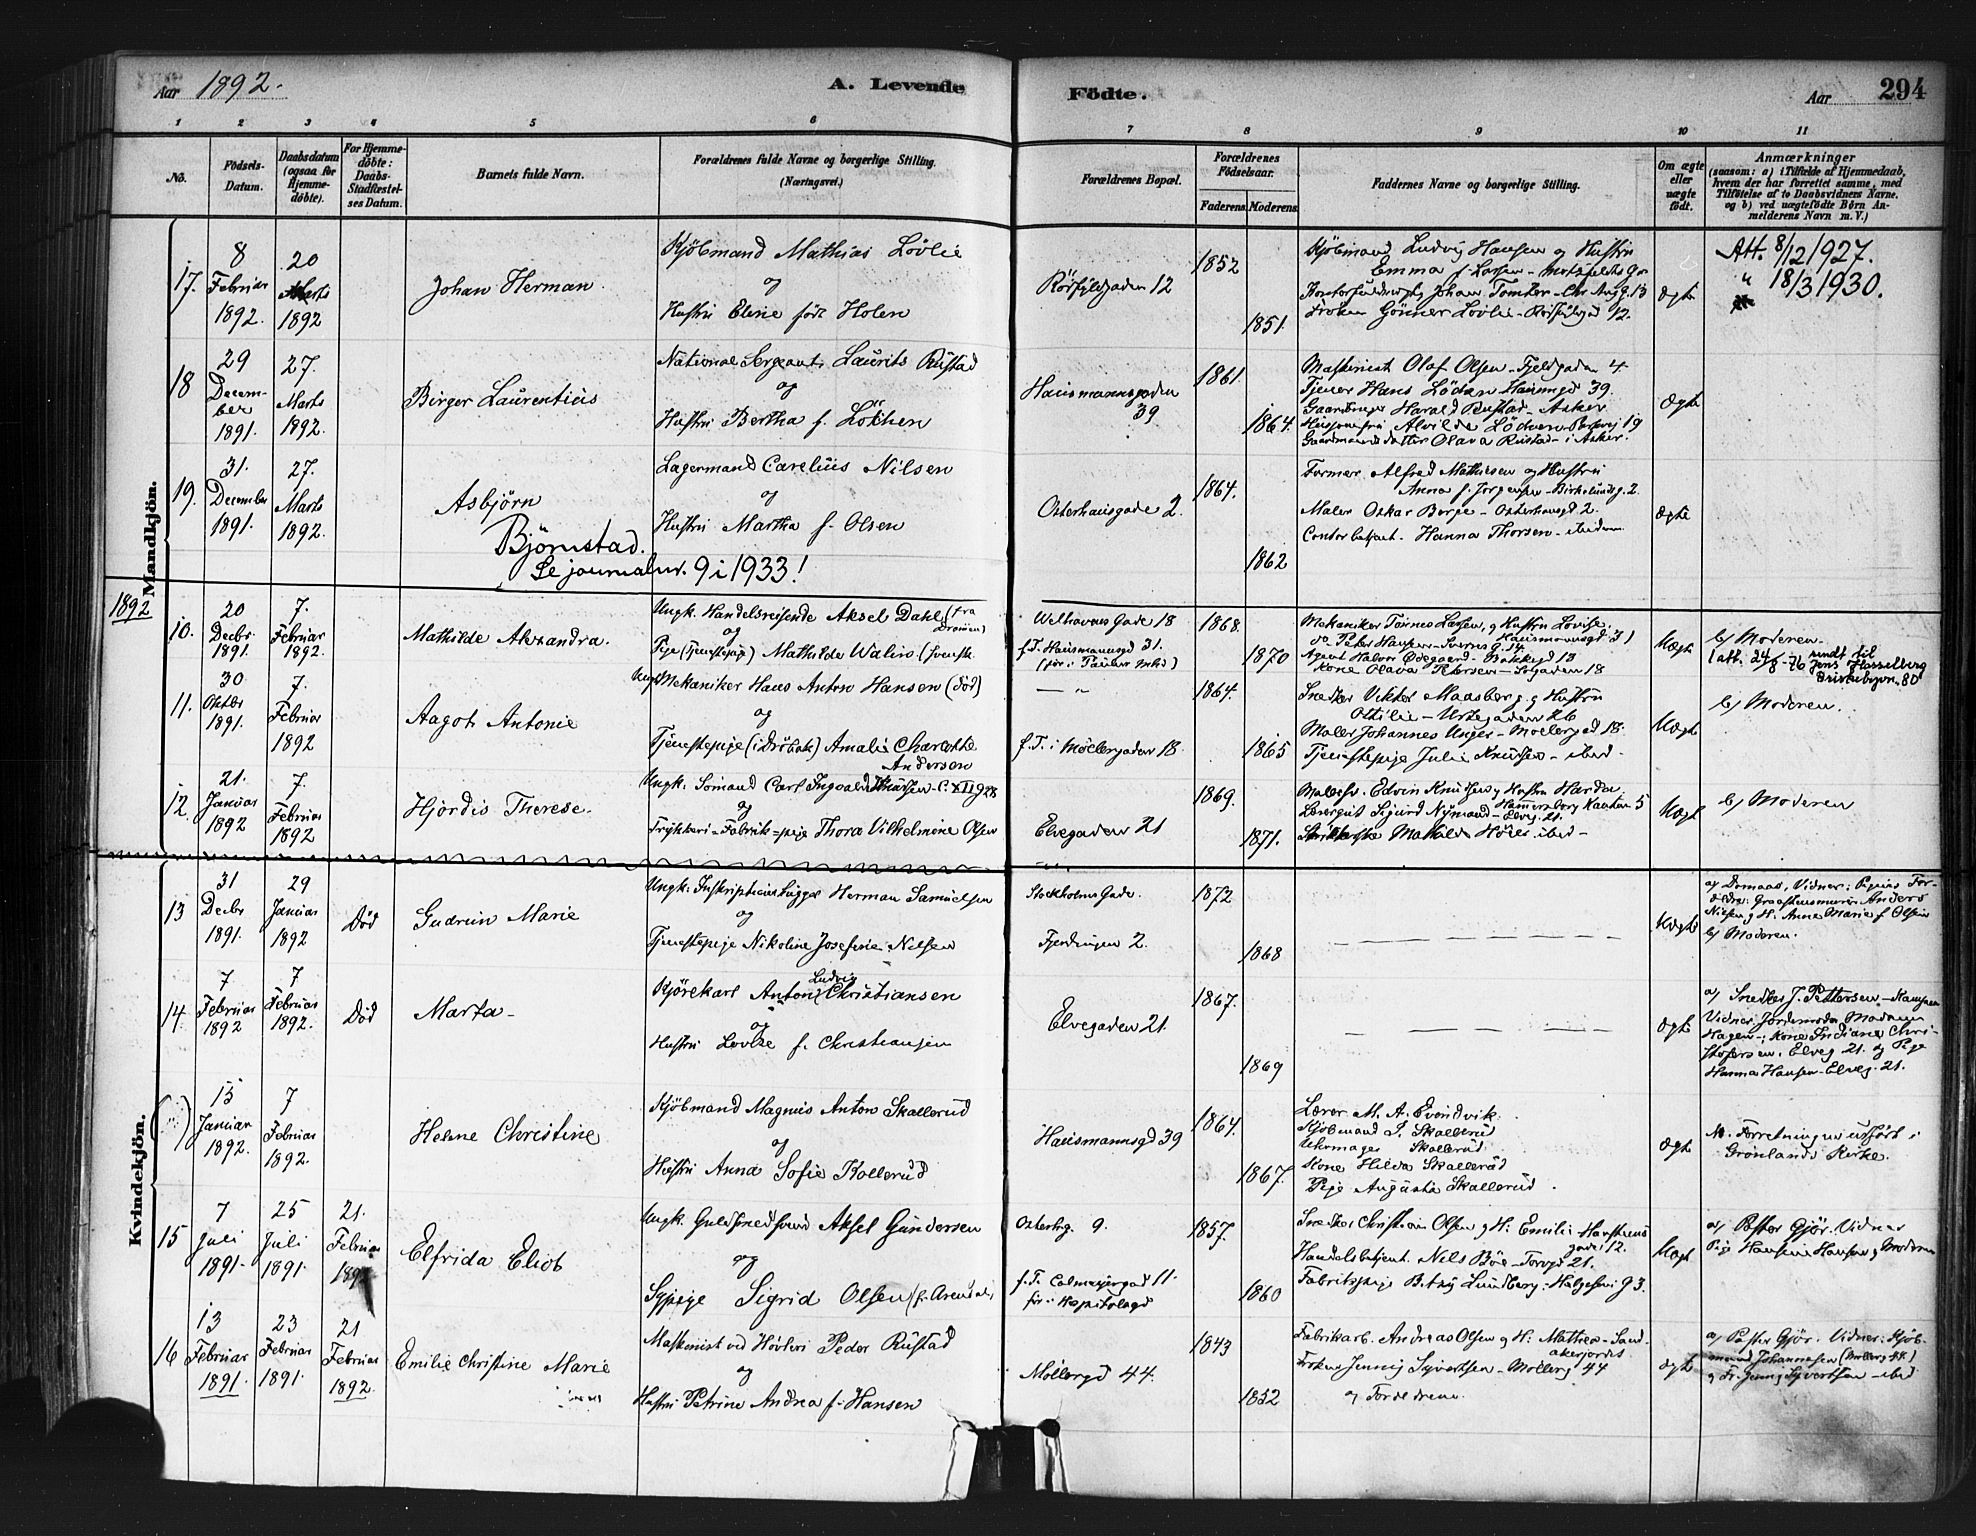 Aar 1892.
A. Levende
Födte.
Aar
294
1 2 3 4 5 6 7 8 9 10 11
No.
Födsels-
Datum.
Daabsdatum
(ogsaa for
Hjemme-
döbte).
For Hjemme-
döbte:
Daabs-
Stadfæstel-
ses Datum.
Barnets fulde Navn.
Forældrenes fulde Navne og borgerlige Stilling.
(Næringsvei.)
Forældrenes Bopæl.
Forældrenes
Födselsaar.
Faderens. Moderens.
Faddernes Navne og borgerlige Stilling.
Om ægte
eller
uægte
födt.
Anmærkninger
(saasom: a) i Tilfælde af Hjemmedaab,
hvem der har forrettet samme, med
Tilföielse af to Daabsvidners Navne.
og b) ved uægtefödte Börn An-
melderens Navn m. V.)
Mandkjön.
17.
8
Februar
1892.
20
Marts
1892
Johan Herman.
Kjöbmand Mathias Lövlie
og
Hustru Elene födt Holen
Rörfyldgaden 12
1852
1851.
Kjöbmand Ludvig Hansen og Hustru
Emma f. Larsen
Johan Tomter - Chr. Aug. g. 13
Fröken Gönner Lövlie 12.
Ægte
Att. 8/12 1927.
" 18/3 1930.
18
29
Decem-
ber
1891.
27.
Marts
1892.
Birger Laurentius
National Sergeant Laurits Rustad
og
Hustru Bertha f. Lökhen
Hausmannsgaden
39
1861
1864.
Maskinist Olaf Olsen - Fjeldgaden 4
Tjener Hans 39.
Gaardbruger Harald Rustad - Asker
Alvilde 19
Gaardmandsdatter Olava Rustad - i Asker.
Ægte
19.
31.
December
1891.
27.
Marts
1892.
Asbjörn
Björnstad.
Se journalnr. 9 i 1933!
Lagermand Carelius Nilsen
og
Hustru Martha f. Olsen
Osterhausgade 2.
1864.
1862
Former Alfred Mathiesen og Hustru
Anna f. Jorgensen - Birkelundsg. 2.
Maler Oskar Berge - Osterhausgd 2.
Contorbetjent. Hanna Thorsen -
Ægte
Kvindekjön.
1892
10.
20
Decbr.
1891.
7.
Februar
1892.
Mathilde Alexandra.
Ungk. Handelsreisende Aksel Dahl (fra
Drammen)
og
Pige (Tjenestepige) Mathilde Walin (svensk.
Welhavens Gade 18
f.T. Hausmannsgd 31.
1868.
1870
Mekaniker Tönnes Larsen, g Hustru Lovise.
Hausmannsgd 31
do Peter Hansen
Agent Halvor Ödegaard - Bakkegd 13
Kone Olava Petersen 18
Uægte
b) Moderen.
1 att. 24/8-76 sendt til
Jens Hasselberg
11.
30
Oktbr
1891.
7.
Februar
1892
Aagot Antonie
Ungk. Mekaniker Hans Anton Hansen (död)
og
Tjenestepige (i Dröbak) Amalie Charlotte
Andersen
— " —
f.T. i Möllergaden 18.
1864.
1865
Snedker Viktor Maasberg g Hustru
Ottilie - Urtegaden 26
Maler Johannes Unger - Möllergad 18.
Tjenestepige Julie Knudsen - ibid
Uægte
b) Moderen.
12
21.
Januar
1892
7.
Februar
1892
Hjördis Therese.
Ungk. Sömand Carl Ingvald Knudsen
og
Trykkeri-Fabrik-pige Thora Vilhelmine Olsen
Elvegaden 21
1869.
1871.
Edvin Knudsen g Hustru Hardia,
Hammersborg 5
Sigurd Nymand - Elveg. 21.
Mathilde ibid -
Uægt
b) Moderen
13
31
Decbr
1891.
29
Januar
1892
Död
Gudrun Marie
Ungk. Herman Samuelsen
og
Tjenestepige Nikoline Josefine Nelsen
Stockholms Gade.
Fjerdingen 2.
1872
1868
Uægte
a) Domaas, Vidner: Pigens For-
ældre: Anders
Nilsen g H. Anne Marie f. Olsen
b) Moderen.
14.
7
Februar
1892
7
Februar
1892.
Död
Marta -
Kjörekarl Anton Ludvig Christiansen
og
Hustru Lovise f. Christiansen
Elvegaden 21.
1867.
1869
Ægte
a) Snedker J. Pettersen - Kampen
Vidner: Jordemoder Madam
Hagen - Kone Indiana Chri-
stofersen, Elveg 21. og Pige
Hanna Hansen - Elveg. 21.
15
Januar
1892.
7
Februar
1892.
Helene Christine
Kjöbmand Magnus Anton Skallerud
og
Hustru Anna Sofie Kollerud
Hausmannsgd 39
1864.
1867.
Lærer M. A. Evendvik.
Kjöbmand J. Skallerud
Uhrmager Skallerud
Kone Hilda Skallerud
Pige Augusta Skallerud.
Ægte
N. Forretningen udfört i
Grönlands Kirke.
15
7
Juli
1891-
25
Juli
1891
21.
Februar
Elfrida Eliot
Ungk. Guldsmedsvend Aksel Gundersen
og
Sypige Sigrid Olsen (f. Arendal)
Osterhg. 9.
f.T. Calmeyergad 11.
för i Kapitelsgd
1857.
1860
Snedker Christian Olsen g H: Emilie - Hausmanns
gade 12.
Handelsbetjent Nels Böe - Torvgd 21.
Fabrikspige Betzy Lundberg - Helgesens G 3.
Uægt
a) Pastor Gjör. Vidner
Pige Hansine Hansen g Moderen
16
13
Februar
1891.
23
Februar
1891.
21
Februar
1892.
Emilie Christine Marie
Maskinist ved Hövleri Peder Rustad
og
Hustru Petrine Andrea f. Hansen
Möllergd 44.
1843
1852
Fabrikarb. Andreas Olsen g H: Mathea - Sand-
akerjordet
Fröken Jenny Syvertsen - Möllerg 44
og Forældrene.
Ægte
a) Pastor Gjör. Vidner: Kjöb-
mand Johannesen (Möllerg 44)
g Fr. Jenny Syvertsen - ibid